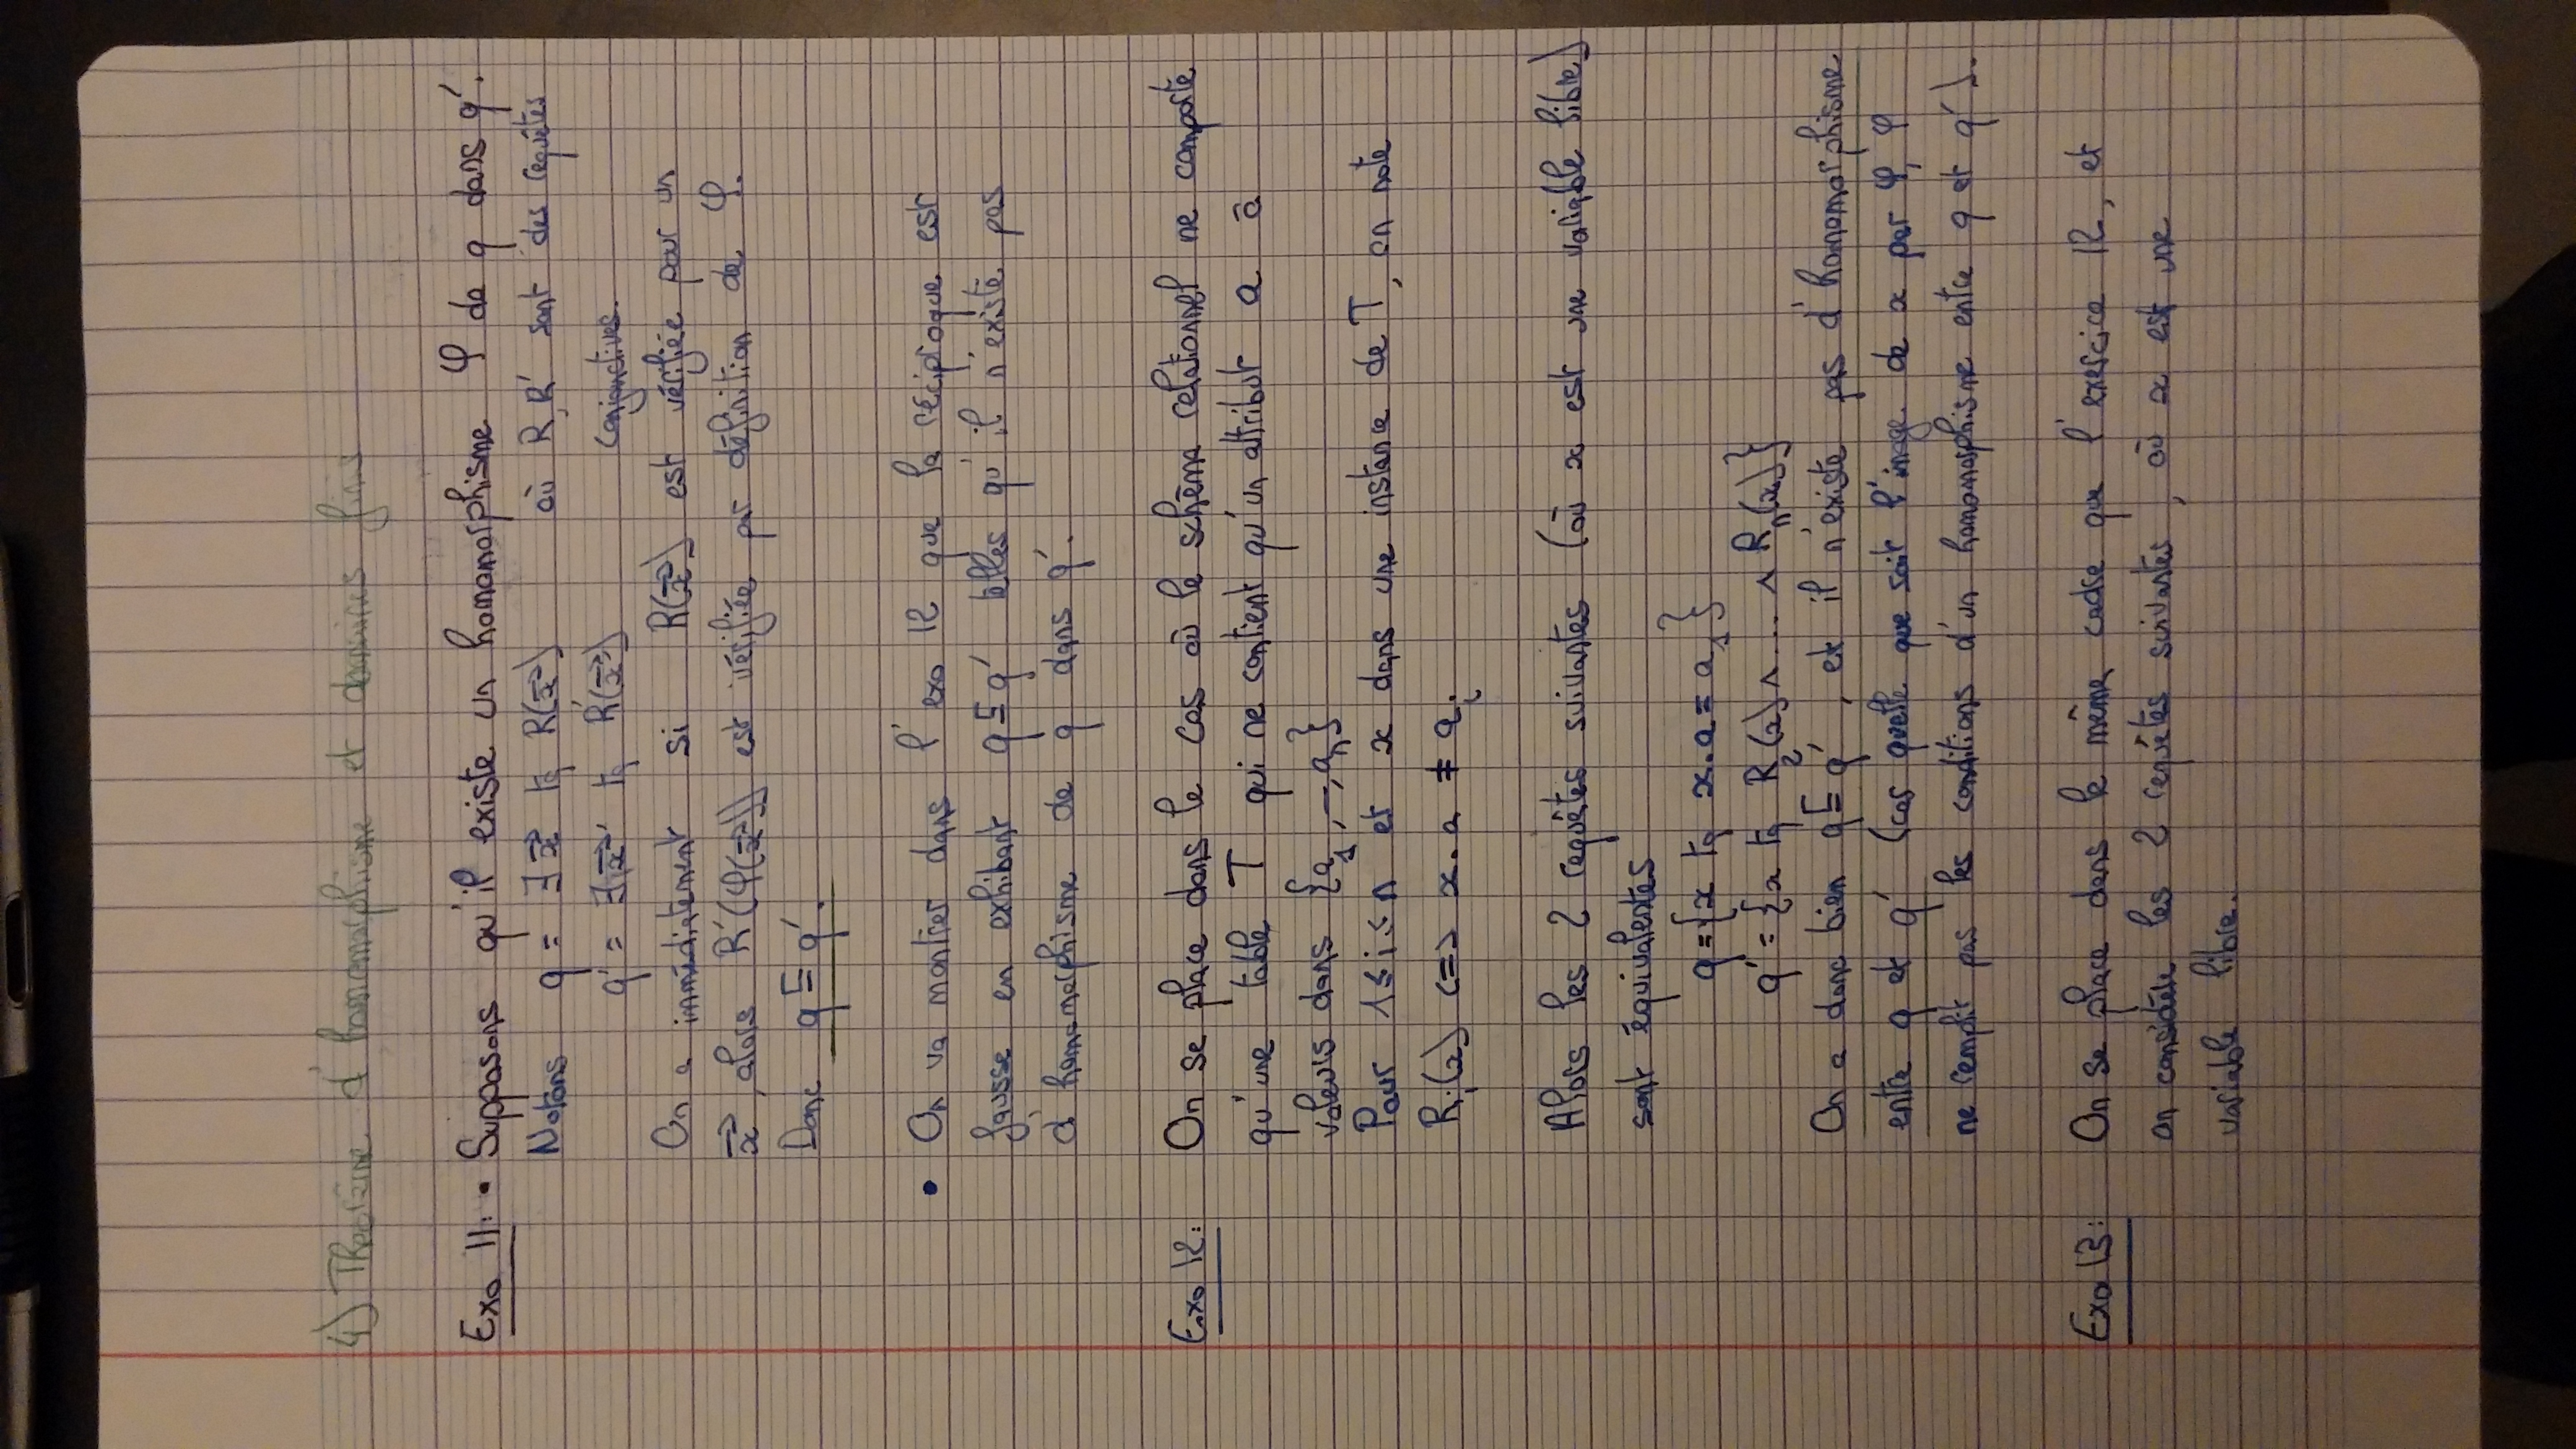 4) Théorème d'homomorphisme et domaines finis
Exo 11: • Supposons qu'il existe un homomorphisme φ de q dans q'.
Notons q = ∃x⃗ tq R(x⃗) où R, R' sont des requêtes
q' = ∃x⃗' tq R'(x⃗') conjonctives.
On a immédiatement si R(x⃗) est vérifiée pour un
x⃗, alors R'(φ(x⃗)) est vérifiée par définition de φ.
Donc q ⊑ q'.
• On va montrer dans l'exo 12 que la réciproque est
fausse en exhibant q ⊑ q' telles qu'il n'existe pas
d'homomorphisme de q dans q'.
Exo 12: On se place dans le cas où le schéma relationnel ne comporte
qu'une table T qui ne contient qu'un attribut a à
valeurs dans {a₁, –, aₙ}
Pour 1 ≤ i ≤ n et x dans une instance de T, on note
Rᵢ(x) <=> x.a ≠ aᵢ
Alors les 2 requêtes suivantes (où x est une variable libre)
sont équivalentes
q = {x tq x.a = a₁}
q' = {x tq R₂(x) ∧ ... ∧ Rₙ(x)}
On a donc bien q ⊑ q', et il n'existe pas d'homomorphisme
entre q et q' (car quelle que soit l'image de x par φ, φ
ne remplit pas les conditions d'un homomorphisme entre q et q').
Exo 13: On se place dans le même cadre que l'exercice 12, et
on considère les 2 requêtes suivantes, où x est une
variable libre.